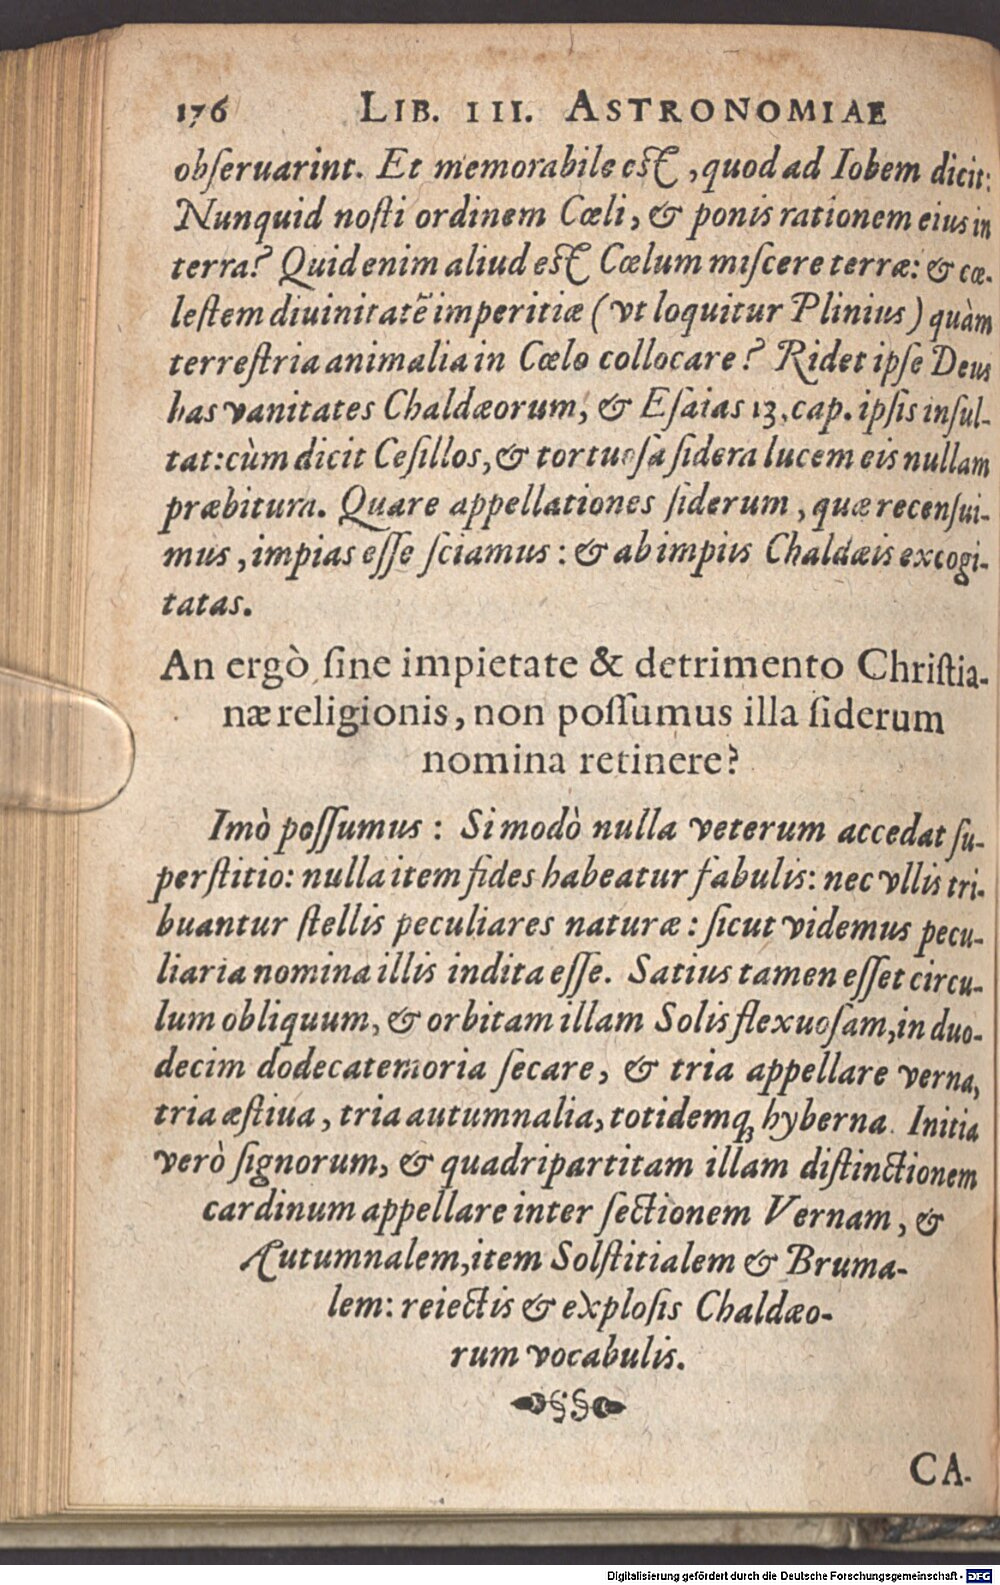 176 LIB. III. ASTRONOMIAE
obſeruarint. Et memorabile eſt, quod ad Iobem dicit:
Nunquid noſti ordinem Cœli, & ponis rationem eius in
terra? Quid enim aliud eſt Cœlum miſcere terræ: & cœ-
leſtem diuinitatẽ imperitiæ (vt loquitur Plinius) quàm
terreſtria animalia in Cœlo collocare? Ridet ipſe Deus
has vanitates Chaldæorum, & Eſaias 13. cap. ipſis inſul-
tat: cùm dicit Ceſillos, & tortuoſa ſidera lucem eis nullam
præbitura. Quare appellationes ſiderum, quæ recenſui-
mus, impias eſſe ſciamus: & ab impiis Chaldæis excogi-
tatas.
An ergò ſine impietate & detrimento Chriſtia-
næ religionis, non poſſumus illa ſiderum
nomina retinere?
Imò poſſumus: Si modò nulla veterum accedat ſu-
perſtitio: nulla item fides habeatur fabulis: nec vllis tri-
buantur ſtellis peculiares naturæ: ſicut videmus pecu-
liaria nomina illis indita eſſe. Satius tamen eſſet circu-
lum obliquum, & orbitam illam Solis flexuoſam, in duo-
decim dodecatemoria ſecare, & tria appellare verna,
tria æſtiua, tria autumnalia, totidemq́; hyberna. Initia
verò ſignorum, & quadripartitam illam diſtinctionem
cardinum appellare inter ſectionem Vernam, &
Autumnalem, item Solſtitialem & Bruma-
lem: reiectis & exploſis Chaldæo-
rum vocabulis.
CA-
Digitalisierung gefördert durch die Deutsche Forschungsgemeinschaft - DFG